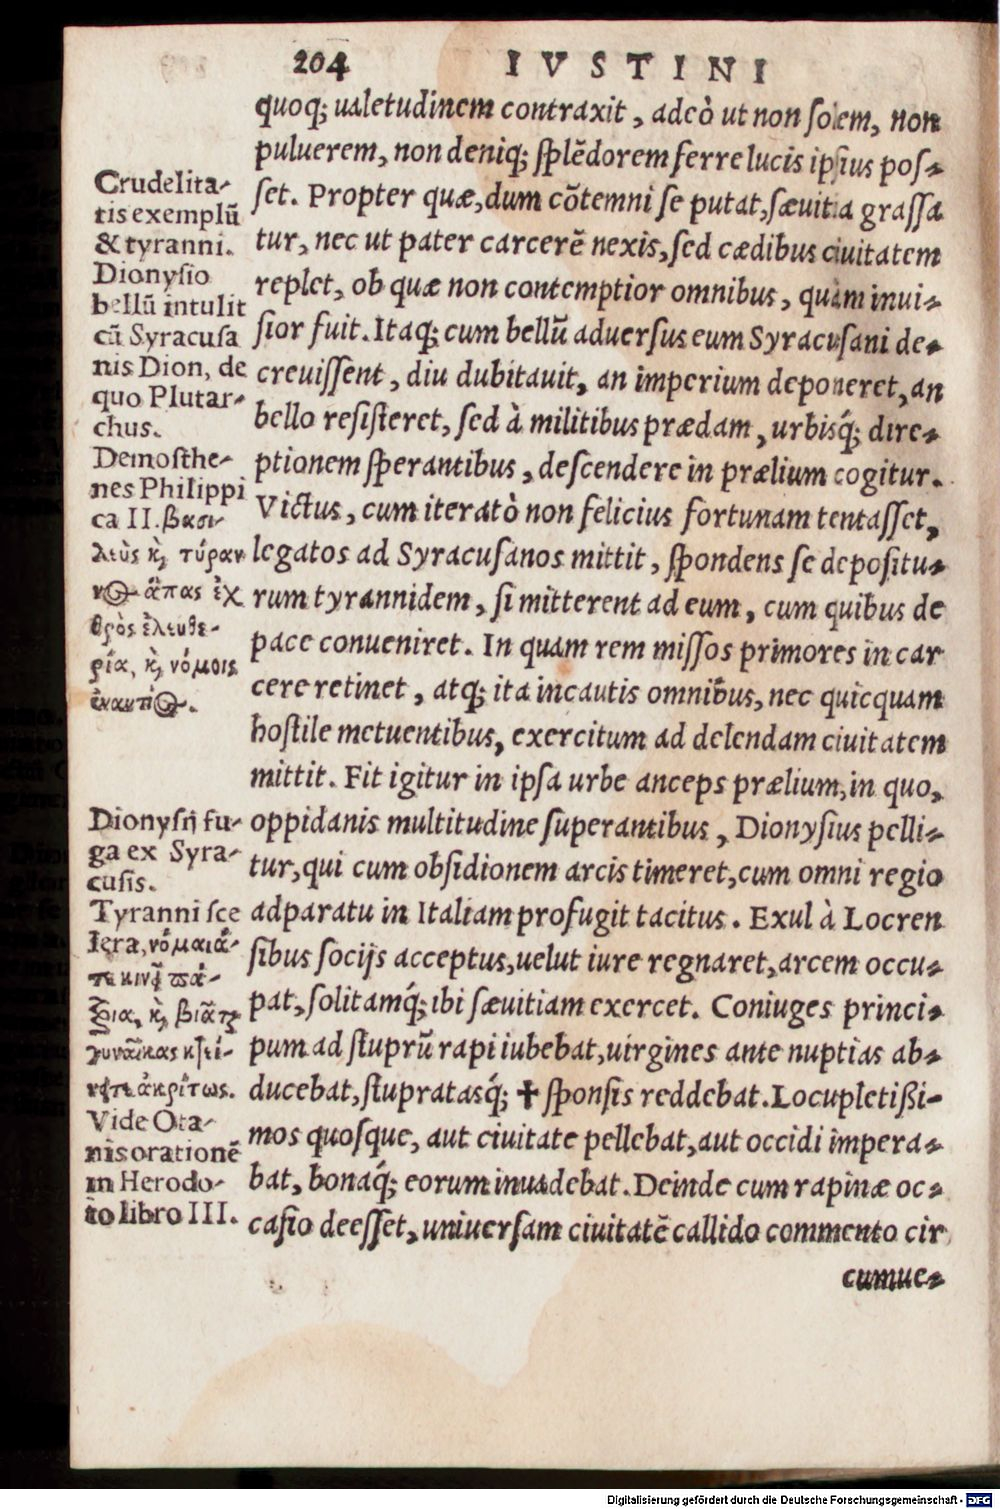 204 IVSTINI
quoq; ualetudinem contraxit, adeò ut non solem, non
puluerem, non deniq; splēdorem ferre lucis ipsius pos-
set. Propter quæ, dum cōtemni se putat, sæuitia grassa
tur, nec ut pater carcerē nexis, sed cædibus ciuitatem
replet, ob quæ non contemptior omnibus, quàm inui-
sior fuit. Itaq; cum bellū aduersus eum Syracusani de-
creuissent, diu dubitauit, an imperium deponeret, an
bello resisteret, sed à militibus prædam, urbisq́; dire-
ptionem sperantibus, descendere in prælium cogitur.
Victus, cum iteratò non felicius fortunam tentasset,
legatos ad Syracusanos mittit, spondens se depositu-
rum tyrannidem, si mitterent ad eum, cum quibus de
pace conueniret. In quam rem missos primores in car
cere retinet, atq; ita incautis omnibus, nec quicquam
hostile metuentibus, exercitum ad delendam ciuitatem
mittit. Fit igitur in ipsa urbe anceps prælium, in quo,
oppidanis multitudine superantibus, Dionysius pelli-
tur, qui cum obsidionem arcis timeret, cum omni regio
adparatu in Italiam profugit tacitus. Exul à Locren
sibus socijs acceptus, uelut iure regnaret, arcem occu-
pat, solitamq́; ibi sæuitiam exercet. Coniuges princi-
pum ad stuprū rapi iubebat, uirgines ante nuptias ab-
ducebat, stupratasq́; ✝ sponsis reddebat. Locupletißi-
mos quosque, aut ciuitate pellebat, aut occidi impera-
bat, bonaq́; eorum inuadebat. Deinde cum rapinæ oc-
casio deesset, uniuersam ciuitatē callido commento cir
cumue-
Crudelita-
tis exemplū
& tyranni.
Dionysio
bellū intulit
cū Syracusa
nis Dion, de
quo Plutar-
chus.
Demosthe-
nes Philippi
ca II. βασι-
λεὺς κ̀ τύραν
νος ἅπας ἐχ
θρὸς ἐλευθε-
ρία, κ̀ νόμοις
ἐναντίος.
Dionysij fu-
ga ex Syra-
cusis.
Tyranni sce
lera, νόμαιά-
τε κινεῖ πά-
τρια, κ̀ βιᾶται
γυναῖκας κτεί-
νει τε ἀκρίτως.
Vide Ota-
nis orationē
in Herodo-
to libro III.
Digitalisierung gefördert durch die Deutsche Forschungsgemeinschaft - DFG